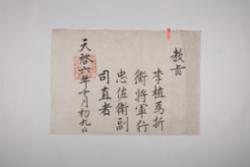 教旨
李植爲折
衝將軍行
忠佐衛副
司直者
天啓六年十月初九日